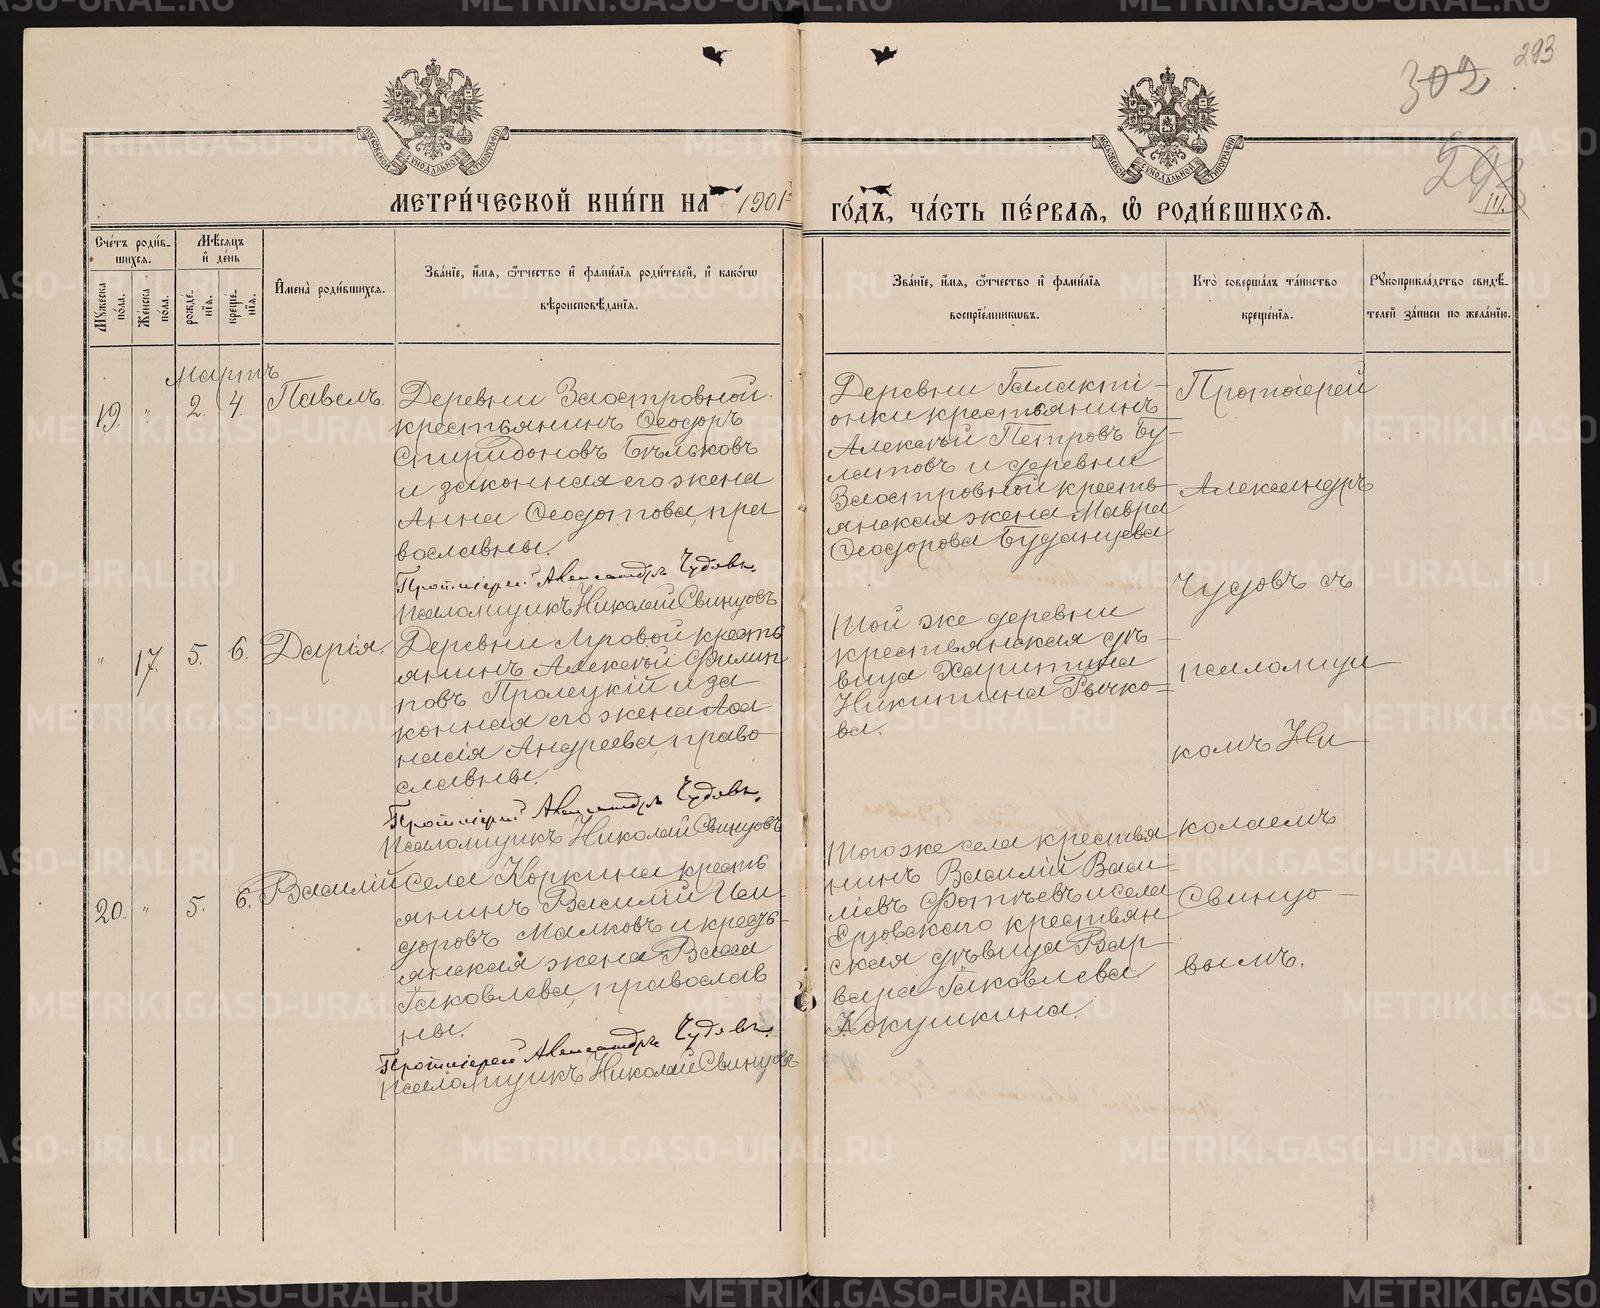 293
302
293
III.
МОСКОВСКОЙ СѴНОДАЛЬНОЙ ТИПОГРАФІИ
МОСКОВСКОЙ СѴНОДАЛЬНОЙ ТИПОГРАФІИ
МЕТРИ́ЧЕСКОЙ КНИ́ГИ НА 1901 ГО́ДЪ, ЧА́СТЬ ПЕ́РВАѦ, Ѽ РОДИ́ВШИХСѦ.
Сче́тъ роди́в-
шихсѧ.
Мꙋ́жеска
по́ла.
Же́нска
по́ла.
Мѣ́сѧцъ
и҆ де́нь
рожде́-
нїѧ.
креще́-
нїѧ.
И҆мена̀ роди́вшихсѧ.
Зва́нїе, и҆́мѧ, ѻ҆́тчество и҆ фами́лїѧ роди́телей, и҆ како́гѡ
вѣроисповѣ́данїѧ.
Зва́нїе, и҆́мѧ, ѻ҆́тчество и҆ фами́лїѧ
воспрїе́мникѡвъ.
Кто̀ соверша́лъ та́инство
креще́нїѧ.
Рꙋкоприкла́дство свидѣ́-
телей за́писи по жела́нїю.
Мартъ
19. " 2. 4. Павелъ.
Деревни Заостровной
крестьянинъ Ѳеодоръ
Спиридоновъ Бѣльковъ
и законная его жена
Анна Ѳеодотова, пра
вославны.
Протоіерей Александръ Чудовъ.
Псаломщикъ Николай Свинцовъ
Деревни Галакті-
онки крестьянинъ
Алексѣй Петровъ Бу-
латовъ и деревни
Заостровной кресть-
янская жена Мавра
Ѳеодорова Буданцева
Протоіерей
Александръ
Чудовъ съ
псаломщи
комъ Ни
колаемъ
Свинцо-
вымъ.
" 17. 5. 6. Дарія.
Деревни Луговой кресть
янинъ Алексѣй Филип
повъ Пролецкій и за
конная его жена Аѳа
насія Андреева, право
славны.
Протоіерей Александръ Чудовъ.
Псаломщикъ Николай Свинцовъ
Той же деревни
крестьянская дѣ-
вица Харитина
Никитина Рычко-
ва.
20. " 5. 6. Василій
Села Коркина кресть
янинъ Василій Иси-
доровъ Малковъ и кресть-
янская жена Васса
Іаковлева, православ
ны.
Протоіерей Александръ Чудовъ.
Псаломщикъ Николай Свинцовъ
Того же села крестья
нинъ Василій Васи-
ліевъ Фотѣевъ и села
Ерзовскаго крестьян
ская дѣвица Вар-
вара Іаковлева
Кокушкина.
METRIKI.GASO-URAL.RU